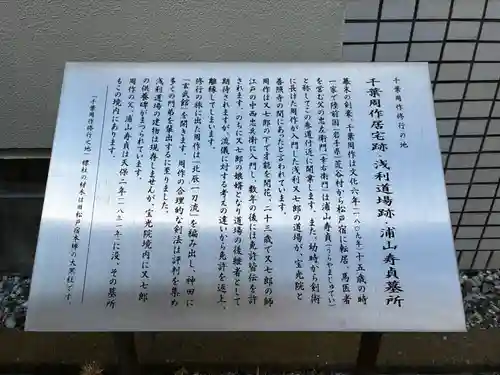 千葉周作修行の地
千葉周作居宅跡・浅利道場跡・浦山寿貞墓所
幕末の剣豪・千葉周作は文化六年（一八〇九年）十五歳の時
一家で陸前国（岩手県）気仙村から松戸宿に転居、馬医者
を営む父の忠左衛門（幸右衛門）は浦山寿貞（うらやまじゅてい）
と称してこの参道付近に開業します。また、幼時から剣術
に長けた周作が入門した浅利又七郎の道場が、宝光院と
善照寺の間にあったと言われています。
周作は又七郎の下で才能を開花、二十三歳で又七郎の師
江戸の中西忠兵衛に入門し、数年の後には免許皆伝を許
されます。のちに又七郎の娘婿となり道場の後継者として
期待されますが、流儀に対する考えの違いから、免許を返上、
離縁してしまいます。
修行の旅に出た周作は「北辰一刀流」を編み出し、神田に
「玄武館」を開きます。周作の合理的な剣法は評判を集め
多くの門弟を輩出するに至りました。
浅利道場の建物は現存しませんが、宝光院境内に又七郎
の供養碑がまつられています。
周作の父、浦山寿貞は天保二年（一八三一年）に没、その墓所
もこの境内にあります。
「千葉周作修行之地」標柱の材木は旧松戸宿本陣の大黒柱です。